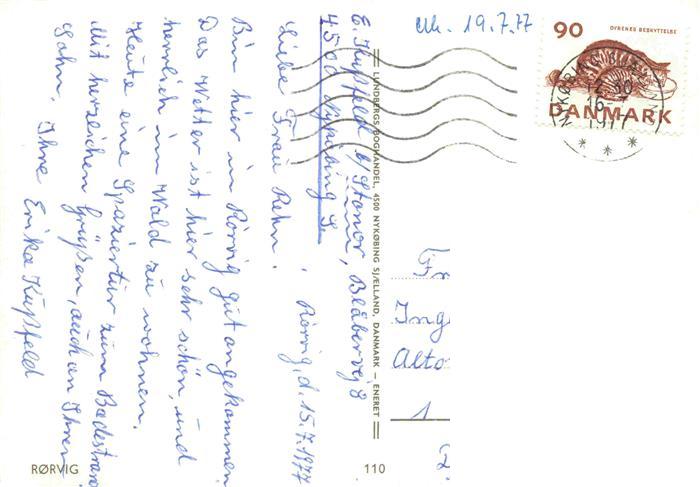 E. Kußfeld b/Stonor, Blåbærvej 8
4500 Nykøbing S.
Rörvig, d. 15.7.1977
Liebe Frau Rehn.
Bin hier in Rörvig gut angekommen.
Das Wetter ist hier sehr schön, und
herrlich im Wald zu wohnen.
Heute eine Spaziertur zum Badestrand
Mit herzlichen Grüßen, auch an Ihren
Sohn, Ihre Erika Kußfeld
RØRVIG
110
LUNDBERGS BOGHANDEL, 4500 NYKØBING SJÆLLAND, DANMARK – ENERET
19.7.77
90
DYRENES BESKYTTELSE
DANMARK
NYKØBING
1977
Fr
Ing
Alto
1